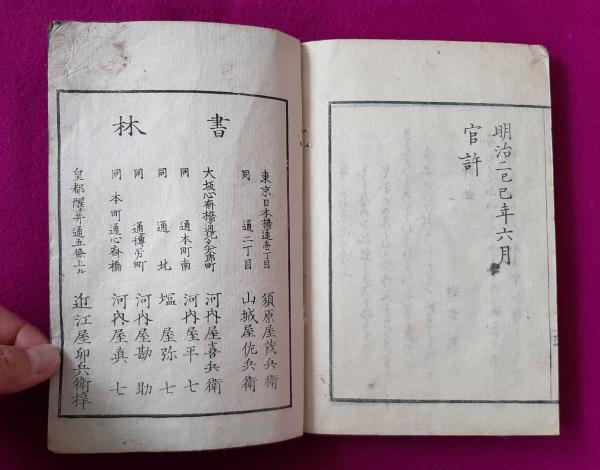 明治二己巳年六月
官許
書林
東京日本橋通壱丁目 須原屋茂兵衛
同 通二丁目 山城屋佐兵衛
大坂心斎橋通北久太郎町 河内屋喜兵衛
同 通本町南 河内屋平七
同 通北 塩屋弥七
同 通博労町 河内屋勘助
同 本町通心斎橋 河内屋真七
皇都醒井通五條上ル 近江屋卯兵衛梓